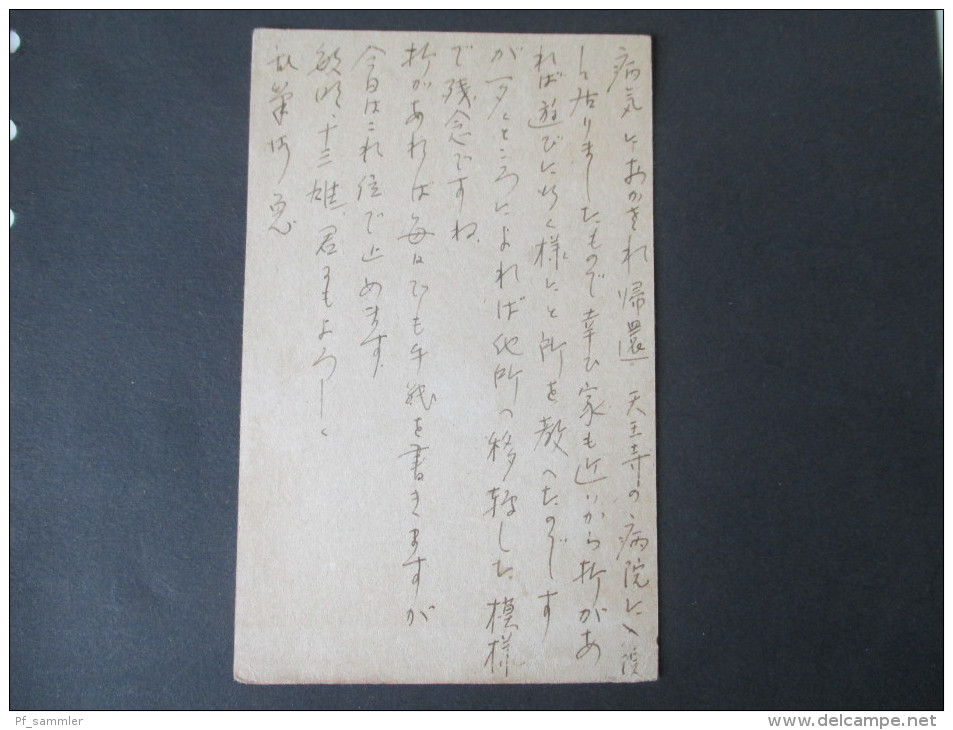 病気におかされ帰還、天王寺の病院に入院
して居りましたもので幸ひ家も近いから折があ
れば遊びに行く様にと所を教へたのです
が聞くところによれば他所へ移転した模様
で残念ですね、
折があれば毎日でも手紙を書きますが
今日はこれ位で止めます。
十三雄君にもよろしく
乱筆
Pf_sammler
www.delcampe.net